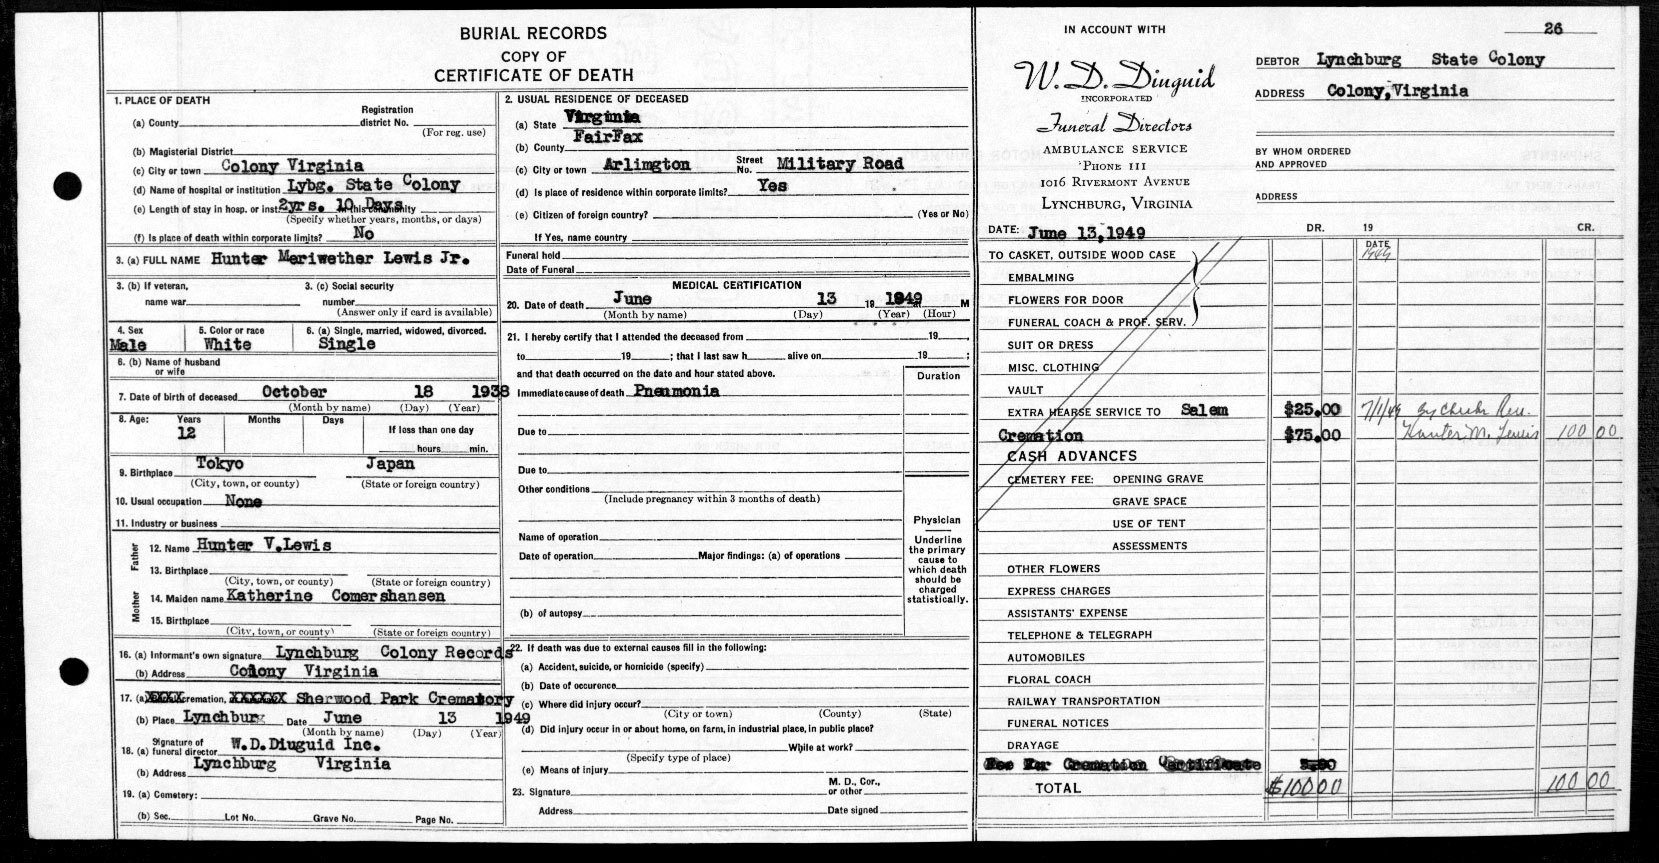 BURIAL RECORDS
COPY OF
CERTIFICATE OF DEATH
1. PLACE OF DEATH
(a) County
Registration district No.
(For reg. use)
(b) Magisterial District
(c) City or town Colony Virginia
(d) Name of hospital or institution Lybg. State Colony
(e) Length of stay in hosp. or inst. 2yrs. 10 Days In this community
(Specify whether years, months, or days)
(f) Is place of death within corporate limits? No
3. (a) FULL NAME Hunter Meriwether Lewis Jr.
3. (b) If veteran, name war
3. (c) Social security number
(Answer only if card is available)
4. Sex Male
5. Color or race White
6. (a) Single, married, widowed, divorced. Single
6. (b) Name of husband or wife
7. Date of birth of deceased October 18 1938
(Month by name) (Day) (Year)
8. Age: Years Months Days If less than one day
12
hours min.
9. Birthplace Tokyo Japan
(City, town, or county) (State or foreign country)
10. Usual occupation None
11. Industry or business
Father
12. Name Hunter V.Lewis
13. Birthplace
(City, town, or county) (State or foreign country)
Mother
14. Maiden name Katherine Comershansen
15. Birthplace
(City, town, or county) (State or foreign country)
16. (a) Informant's own signature Lynchburg Colony Records
(b) Address Colony Virginia
17. (a) XXXX cremation, XXXXXX Sherwood Park Crematory
(b) Place Lynchburg Date June 13 1949
(Month by name) (Day) (Year)
18. (a) Signature of funeral director W.D.Diuguid Inc.
(b) Address Lynchburg Virginia
19. (a) Cemetery:
(b) Sec. Lot No. Grave No. Page No.
2. USUAL RESIDENCE OF DECEASED
(a) State Virginia
(b) County FairFax
(c) City or town Arlimgton Street No. Military Road
(d) Is place of residence within corporate limits? Yes
(e) Citizen of foreign country? (Yes or No)
If Yes, name country
Funeral held
Date of Funeral
MEDICAL CERTIFICATION
20. Date of death June 13 19 1949 M
(Month by name) (Day) (Year) (Hour)
21. I hereby certify that I attended the deceased from 19 ,
to 19 ; that I last saw h alive on 19 ;
and that death occurred on the date and hour stated above.
Duration
Immediate cause of death Pneumonia
Due to
Due to
Other conditions
(Include pregnancy within 3 months of death)
Name of operation
Date of operation Major findings: (a) of operations
(b) of autopsy
Physician
Underline
the primary
cause to
which death
should be
charged
statistically.
22. If death was due to external causes fill in the following:
(a) Accident, suicide, or homicide (specify)
(b) Date of occurence
(c) Where did injury occur?
(City or town) (County) (State)
(d) Did injury occur in or about home, on farm, in industrial place, in public place?
While at work?
(Specify type of place)
(e) Means of injury
23. Signature M. D., Cor., or other
Address Date signed
26
IN ACCOUNT WITH
W. D. Diuguid
INCORPORATED
Funeral Directors
AMBULANCE SERVICE
'PHONE 111
1016 RIVERMONT AVENUE
LYNCHBURG, VIRGINIA
DEBTOR Lynchburg State Colony
ADDRESS Colony,Virginia
BY WHOM ORDERED
AND APPROVED
ADDRESS
DATE: June 13,1949 DR. 19 CR.
DATE
1949
TO CASKET, OUTSIDE WOOD CASE
EMBALMING
FLOWERS FOR DOOR
FUNERAL COACH & PROF. SERV.
SUIT OR DRESS
MISC. CLOTHING
VAULT
EXTRA HEARSE SERVICE TO Salem $25.00 7/1/49 By Check
Cremation $75.00 Hunter M. Lewis 100 00
CASH ADVANCES
CEMETERY FEE: OPENING GRAVE
GRAVE SPACE
USE OF TENT
ASSESSMENTS
OTHER FLOWERS
EXPRESS CHARGES
ASSISTANTS' EXPENSE
TELEPHONE & TELEGRAPH
AUTOMOBILES
FLORAL COACH
RAILWAY TRANSPORTATION
FUNERAL NOTICES
DRAYAGE
Fee For Cremation Certificate
TOTAL $100 00 100 00